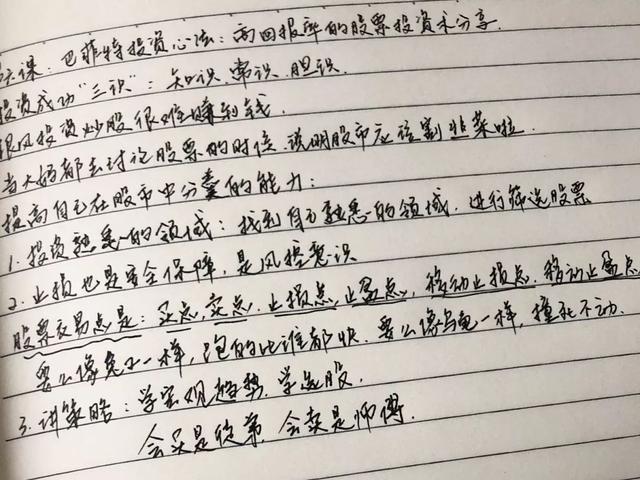 课：巴菲特投资心法：高回报率的股票投资术分享.
投资成功“三识”：知识.常识.胆识.
跟风投资炒股很难赚到钱.
当大妈都去讨论股票的时候.说明股市应该割韭菜啦.
提高自己在股市中分羹的能力：
1.投资熟悉的领域：找到自己熟悉的领域.进行筛选股票
2.止损也是安全保障,是风控意识
股票交易点是：买点,卖点.止损点,止盈点,移动止损点.移动止盈点
要么像兔子一样,跑的比谁都快.要么像乌龟一样,撞死不动.
3.讲策略：学宏观趋势.学选股.
会买是徒弟,会卖是师傅.